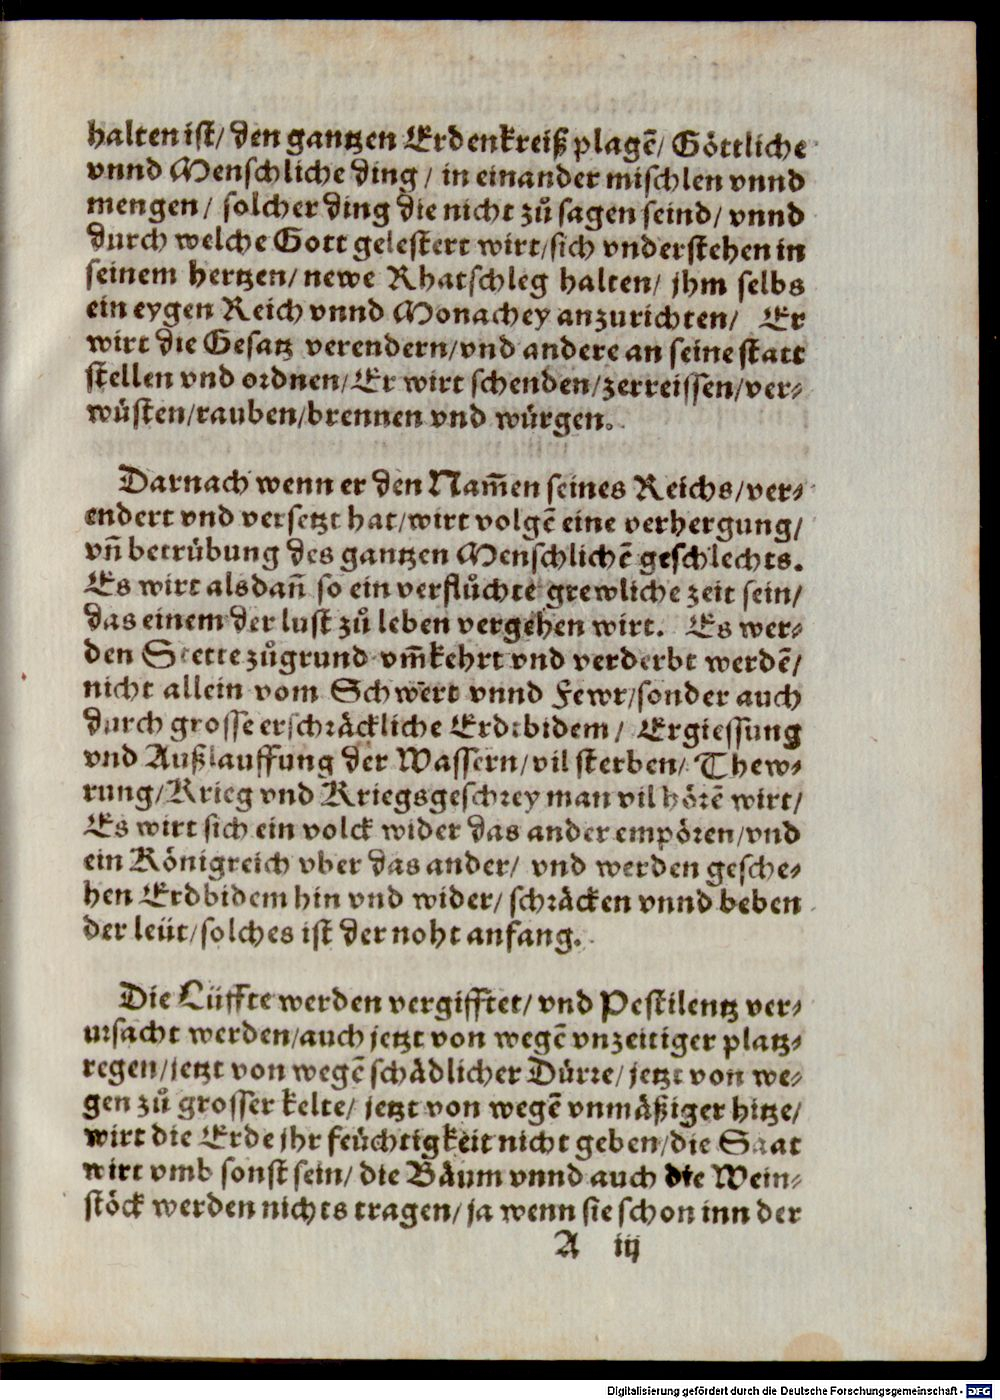 halten ist/ den gantzen Erdenkreiß plagẽ/ Göttliche
vnnd Menschliche ding/ in einander mischlen vnnd
mengen/ solcher ding die nicht zů sagen seind/ vnnd
durch welche Gott gelestert wirt/sich vnderstehen in
seinem hertzen/ newe Rhatschleg halten/ jhm selbs
ein eygen Reich vnnd Monachey anzurichten/ Er
wirt die Gesatz verendern/vnd andere an seine statt
stellen vnd ordnen/Er wirt schenden/zerreissen/ver-
wüsten/rauben/brennen vnd würgen.
Darnach wenn er den Nam̃en seines Reichs/ver-
endert vnd versetzt hat/wirt volgẽ eine verhergung/
vñ betrübung des gantzen Menschlichẽ geschlechts.
Es wirt alsdañ so ein verflůchte grewliche zeit sein/
das einem der lust zů leben vergehen wirt. Es wer-
den Stette zůgrund vm̃kehrt vnd verderbt werdẽ/
nicht allein vom Schwert vnnd Fewr/sonder auch
durch grosse erschräckliche Erdtbidem/ Ergiessung
vnd Außlauffung der Wassern/vil sterben/ Thew-
rung/Krieg vnd Kriegsgeschrey man vil hörẽ wirt/
Es wirt sich ein volck wider das ander empören/vnd
ein Königreich vber das ander/ vnd werden gesche-
hen Erdbidem hin vnd wider/ schräcken vnnd beben
der leüt/solches ist der noht anfang.
Die Lüffte werden vergifftet/ vnd Pestilentz ver-
ursacht werden/auch jetzt von wegẽ vnzeitiger platz-
regen/jetzt von wegẽ schädlicher Dürre/ jetzt von we-
gen zů grosser kelte/ jetzt von wegẽ vnmäßiger hitze/
wirt die Erde jhr feüchtigkeit nicht geben/die Saat
wirt vmb sonst sein/ die Bäum vnnd auch die Wein-
stöck werden nichts tragen/ ja wenn sie schon inn der
A iij
Digitalisierung gefördert durch die Deutsche Forschungsgemeinschaft - DFG